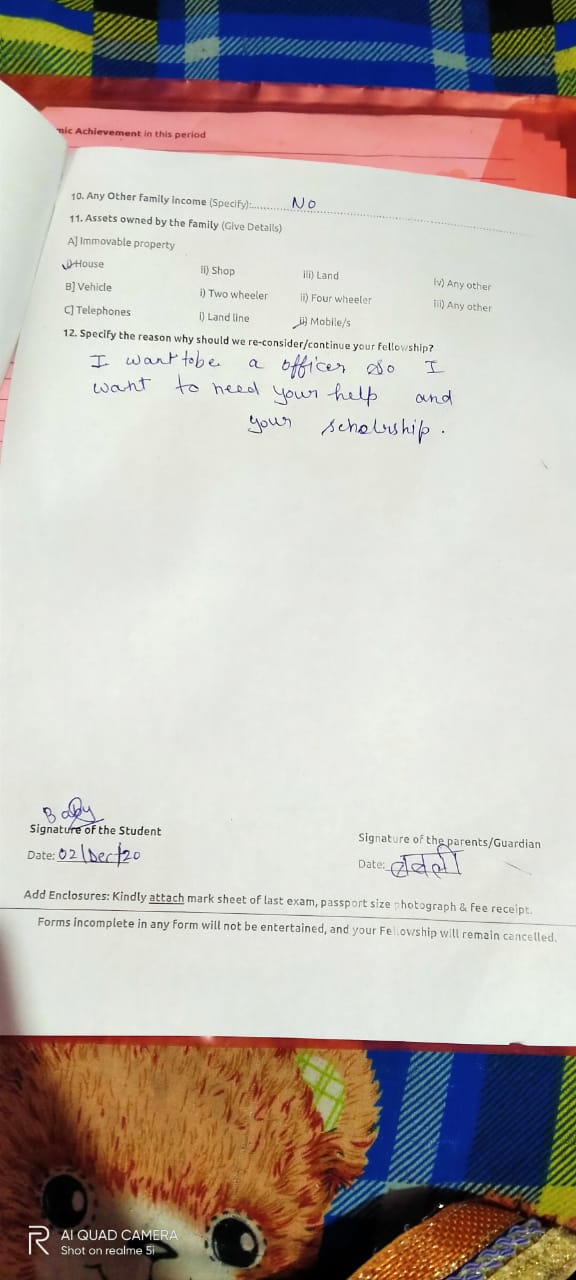 mic Achievement in this period
10. Any Other family income (Specify):.......... No
11. Assets owned by the family (Give Details)
A] Immovable property
i) House ii) Shop iii) Land iv) Any other
B] Vehicle i) Two wheeler ii) Four wheeler iii) Any other
C] Telephones i) Land line ii) Mobile/s
12. Specify the reason why should we re-consider/continue your fellowship?
I want to be a officer so I
want to need your help and
your scholership.
Baby
Signature of the Student
Signature of the parents/Guardian
Date: 02/Dec/20
Date:
Add Enclosures: Kindly attach mark sheet of last exam, passport size photograph & fee receipt.
Forms incomplete in any form will not be entertained, and your Fellowship will remain cancelled.
R AI QUAD CAMERA
Shot on realme 5i